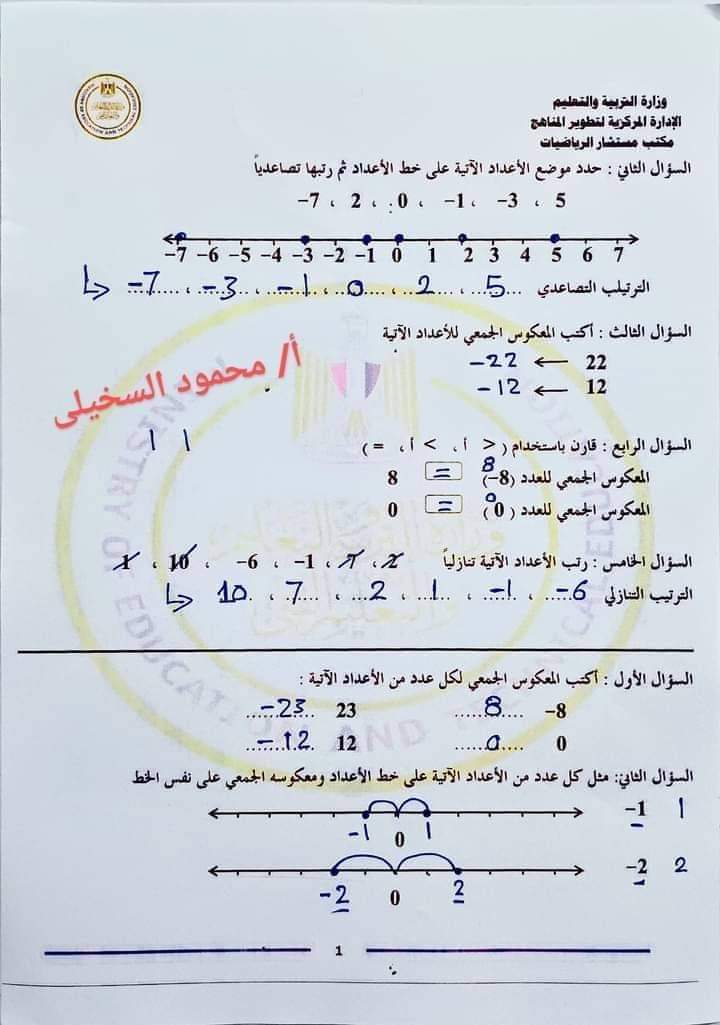 وزارة التربية والتعليم
الإدارة المركزية لتطوير المناهج
مكتب مستشار الرياضيات
السؤال الثاني : حدد موضع الأعداد الآتية على خط الأعداد ثم رتبها تصاعدياً
5 ، −3 ، −1 ، 0 ، 2 ، −7
−7 −6 −5 −4 −3 −2 −1 0 1 2 3 4 5 6 7
الترتيلب التصاعدي ...5... ، ...2... ، ...0... ، ...−1... ، ...−3... ، ...−7...
السؤال الثالث : أكتب المعكوس الجمعي للأعداد الآتية
22 ← −22
12 ← −12
أ/ محمود السخيلى
السؤال الرابع : قارن باستخدام ( < أ، > أ، = )
المعكوس الجمعي للعدد (−8) 8 = 8
المعكوس الجمعي للعدد (0) 0 = 0
السؤال الخامس : رتب الأعداد الآتية تنازلياً 2 ، 7 ، −1 ، −6 ، 10 ، 1
الترتيب التنازلي ...−6... ، ...−1... ، ...1... ، ...2... ، ...7... ، 10
السؤال الأول : أكتب المعكوس الجمعي لكل عدد من الأعداد الآتية :
−8 ...8... 23 ...−23...
0 ...0... 12 ...−12...
السؤال الثاني: مثل كل عدد من الأعداد الآتية على خط الأعداد ومعكوسه الجمعي على نفس الخط
1 −1
−1 0 1
2 −2
−2 0 2
1